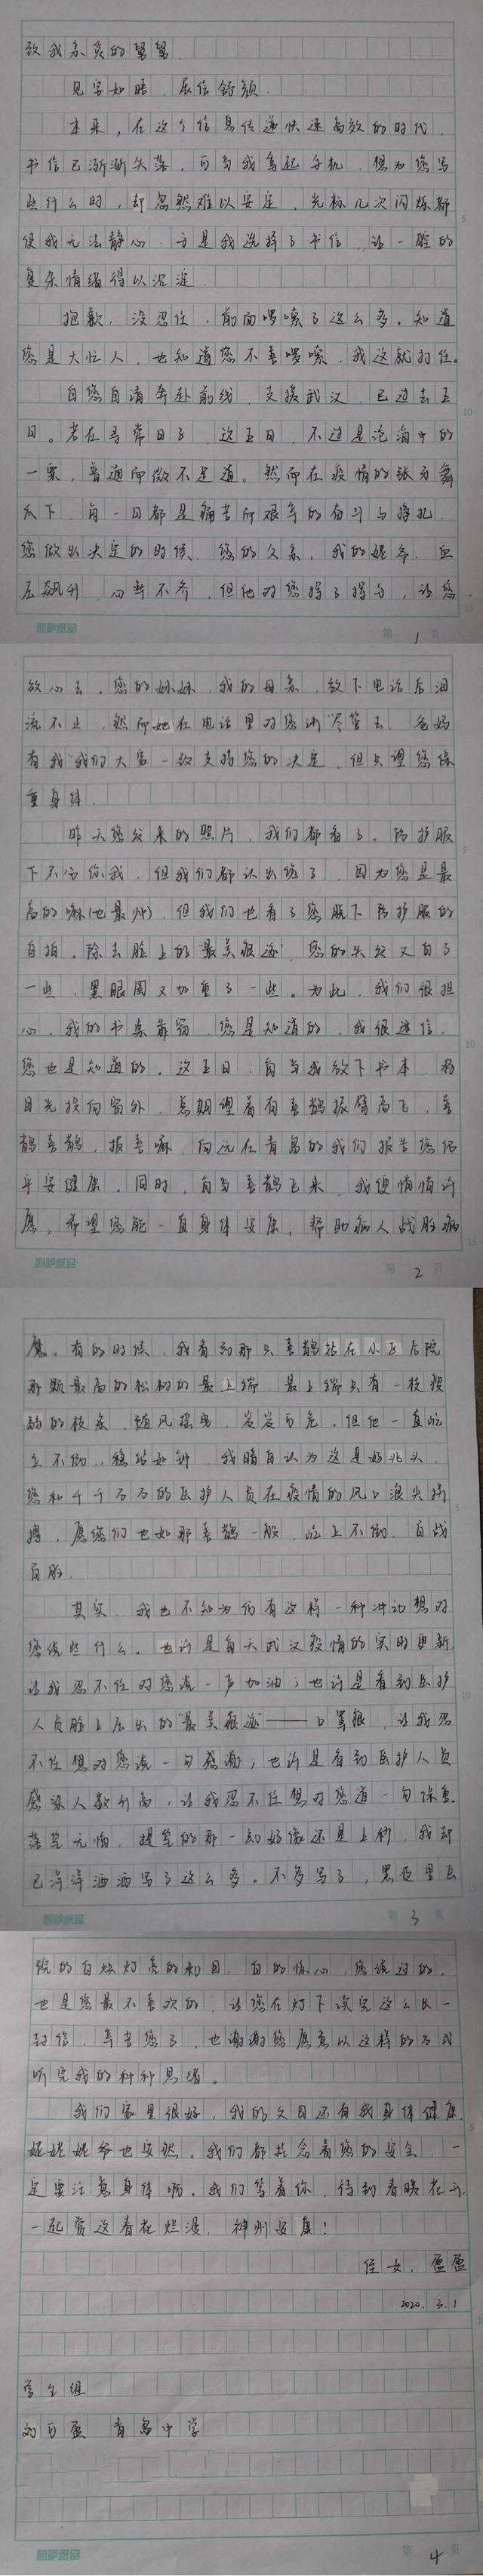 致我亲爱的舅舅
见字如晤,展信舒颜.
本来,在这个信息传递快速高效的时代,
书信已渐渐失落.可当我拿起手机,想为您写
些什么时,却忽然难以安定,光标几次闪烁都
使我无法静心.于是我选择了书信,让一腔的
复杂情绪得以沉淀.
抱歉,没忍住,前面啰嗦了这么多.知道
您是大忙人,也知道您不喜啰嗦.我这就打住。
自您自请奔赴前线,支援武汉,已过去五
日。若在寻常日子,这五日,不过是沧海中的
一粟,普通而微不足道。然而在疫情的张牙舞
爪下,每一日都是痛苦而艰辛的奋斗与挣扎.
您做出决定的时候,您的父亲,我的姥爷,血
压飙升,心率不齐,但他对您挥了挥手,让您
第 1 页
放心去。您的妹妹,我的母亲,放下电话后泪
流不止,然而她在电话里对您讲"尽管去,爸妈
有我"我们大家一致支持您的决定,但只望您保
重身体.
昨天您发来的照片,我们都看了。防护服
下不分你我,但我们都认出您了,因为您是最
高的嘛(也最帅).但我们也看了您脱下防护服的
自拍。除去脸上的"最美痕迹",您的头发又白了
一些,黑眼圈又加重了一些。为此,我们很担
心.我的书桌靠窗,您是知道的,我很迷信,
您也是知道的.这五日,每当我放下书本,将
目光投向窗外,总期望着有喜鹊振臂高飞,喜
鹊喜鹊,报喜嘛,向远在青岛的我们报告您的
平安健康。同时,每当喜鹊飞来,我便悄悄许
愿,希望您能一直身体安康,帮助病人战胜病
第 2 页
魔。有的时候,我看到那只喜鹊站在小区后院
那颗最高的松树的最上端,最上端只有一枝较
弱的枝条,随风摇曳,岌岌可危,但他一直屹
立不倒,稳站如钟,我暗自认为这是好兆头,
您和千千万万的医护人员在疫情的风口浪尖搏
搏,愿您们也如那喜鹊一般,屹立不倒,百战
百胜.
其实,我也不知为何有这样一种冲动想对
您说些什么。也许是每天武汉疫情的实时更新,
让我忍不住对您说一声加油;也许是看到医护
人员脸上压出的"最美痕迹"——口罩痕,让我忍
不住想对您说一句感谢;也许是看到医护人员
感染人数升高,让我忍不住想对您道一句保重.
落笔无悔,提笔的那一刻好像还是上秒,我却
已洋洋洒洒写了这么多。不多写了,黑夜里医
第 3 页
院的白炽灯亮的刺目,白的惊心,您说过的,
也是您最不喜欢的,让您在灯下读完这么长一
封信,辛苦您了,也谢谢您愿意以这样的方式
听完我的种种思绪。
我们家里很好,我的父母还有我身体健康,
姥姥姥爷也安然。我们都挂念着您的安全,一
定要注意身体啊。我们等着你,待到春暖花开,
一起赏这春花烂漫,神州安康!
侄女,盈盈
2020.3.1
学生组
刘百盈 青岛中学
第 4 页